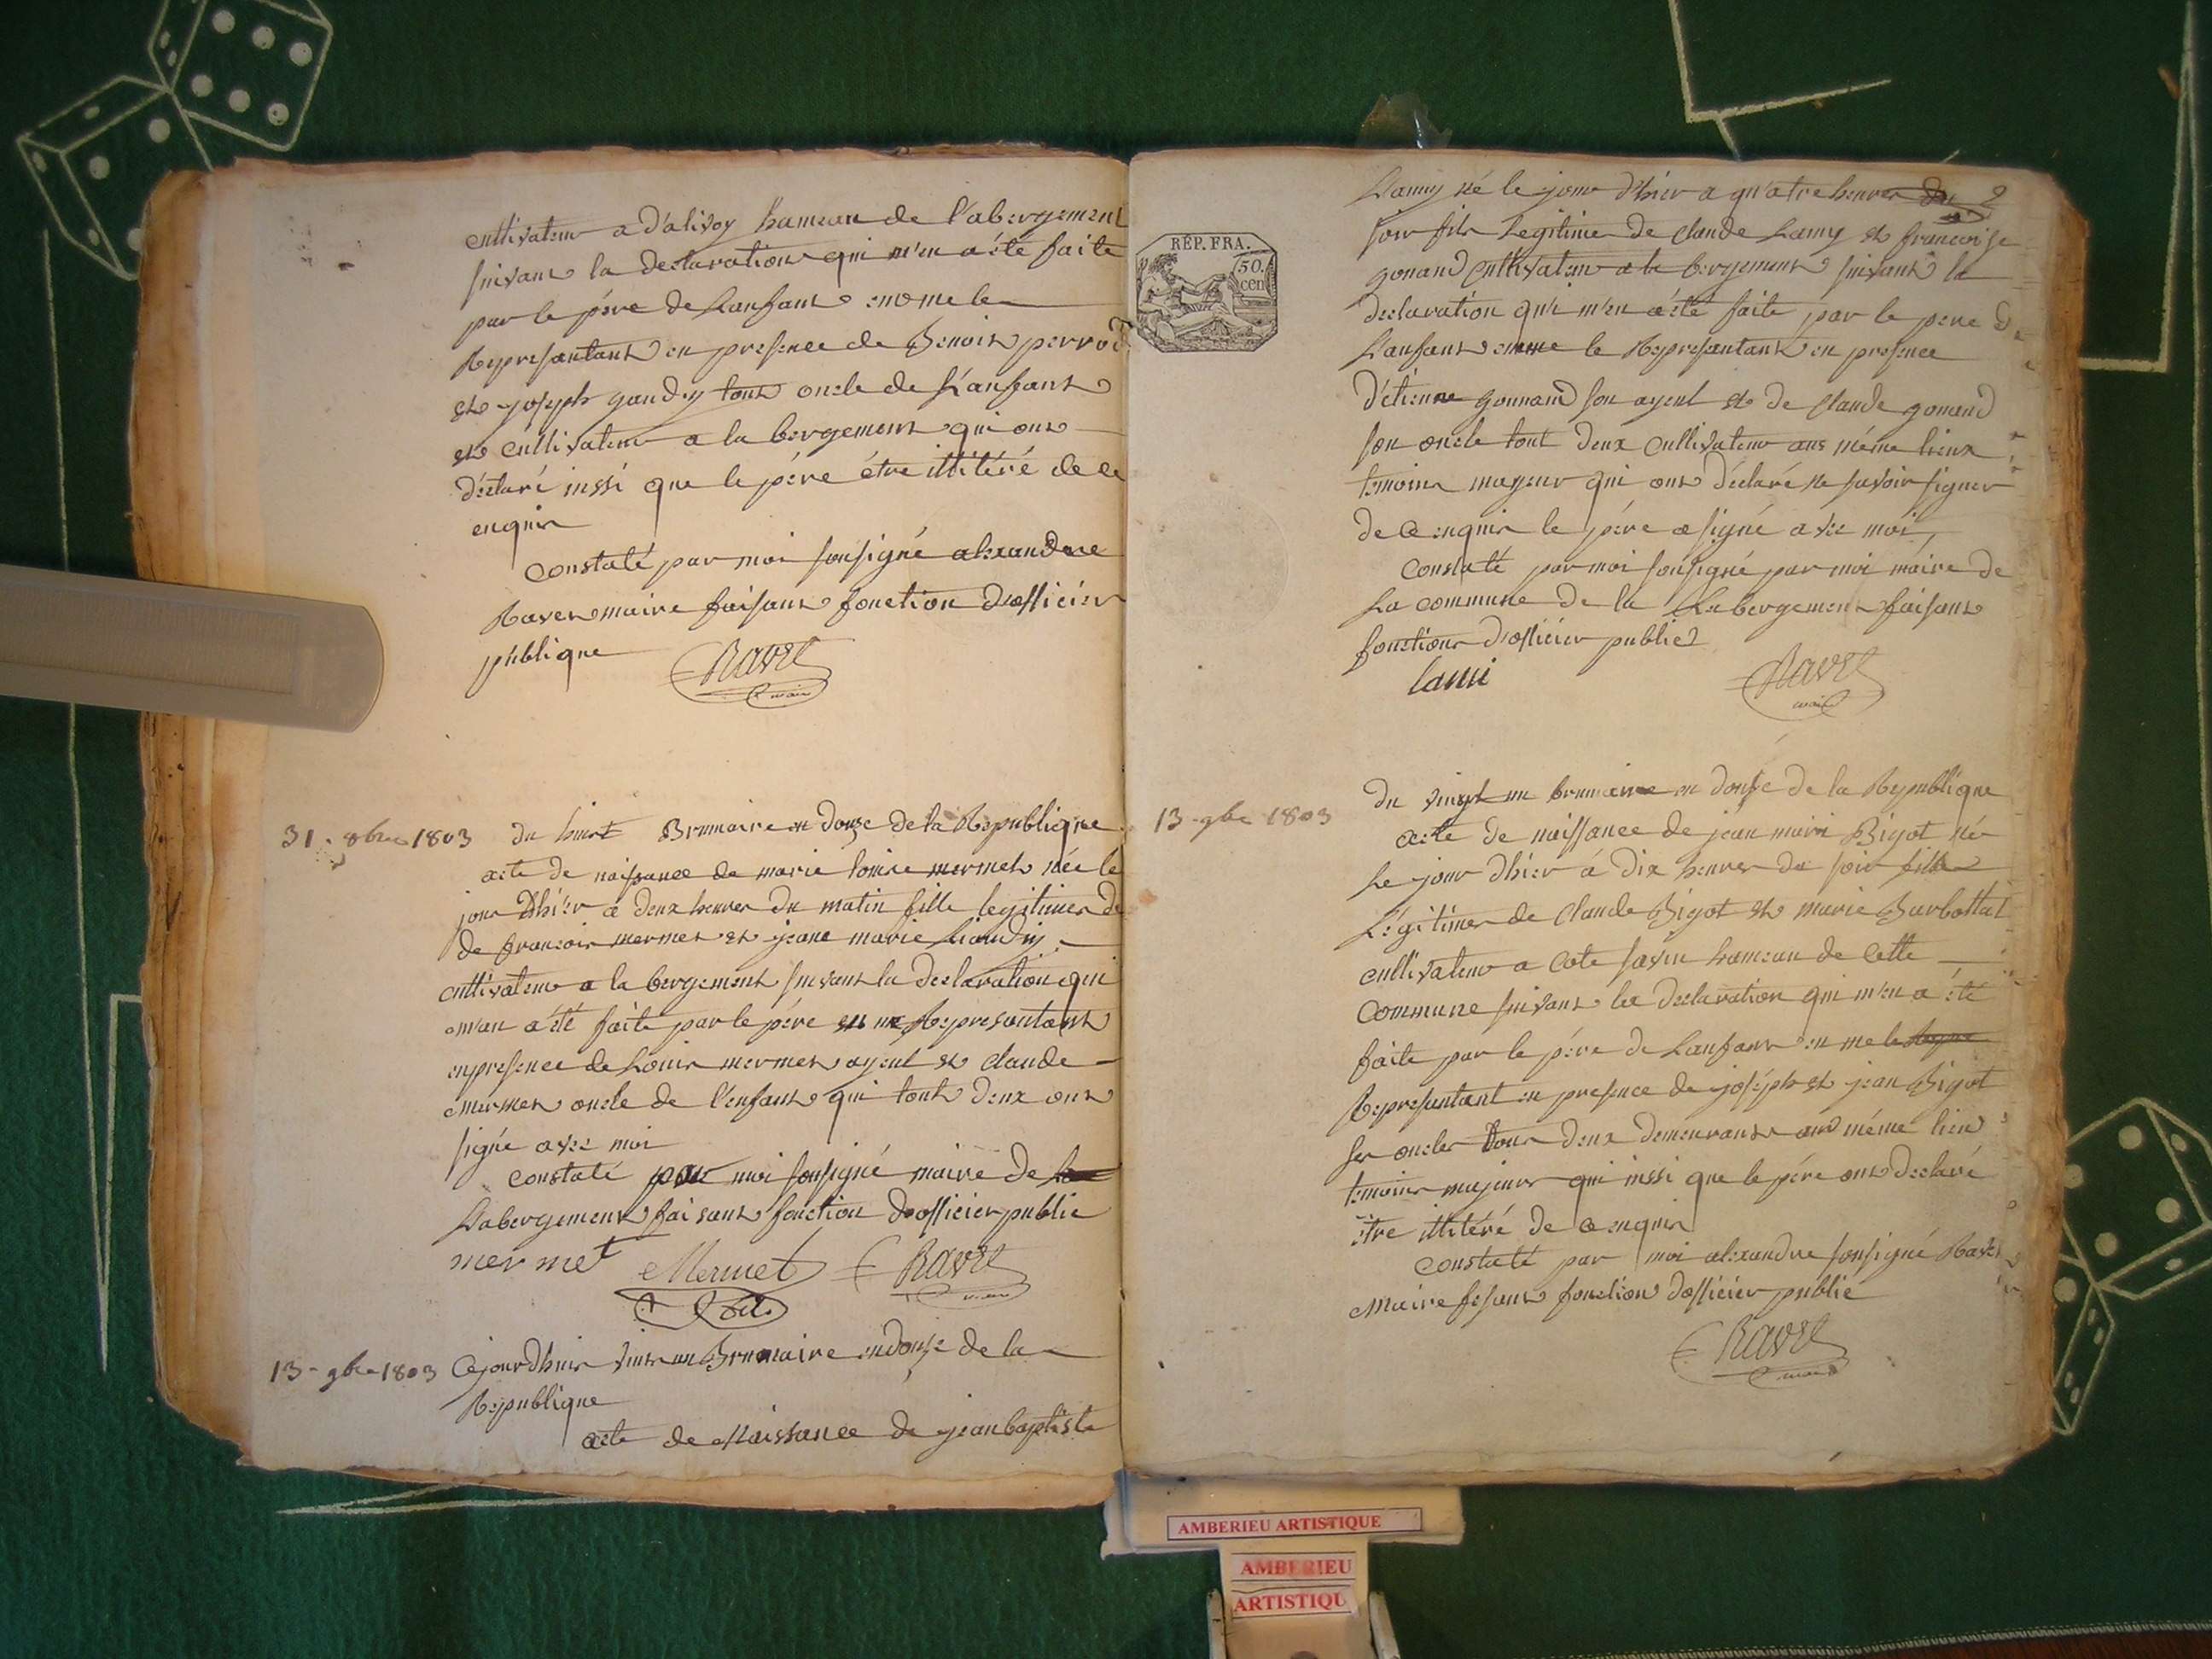 cultivateur a d'alivoy hameau de l'abergement
suivant la declaration qui m'en a été faite
par le pére de Lanfant en me le
Représantant en presence de Benoit perrod
et joseph gaudy tout oncle de L'anfant
et cultivateur a la bergement qui ont
déclaré inssi que le pére étre illitéré de ce
enquis
constaté par moi sousigné alexandre
Ravet maire faisant fonction d'officier
publique
Ravet
maire
31. 8bre 1803
du huit Brumaire en douze de la Republique
acte de naissance de marie louise mermet née le
jour dhier a deux heures du matin fille legitimes de
de francois mermet et jeane marie
cultivateur a la bergement suivant la declaration qui
m'an a été faite par le pére en me Represantant
enpresence de Louis mermet ayeul et claude
mermet oncle de l'enfant qui tout deux ont
signé avec moi
constaté par moi sousigné maire de
Labergement faisant fonction d'officier public
mermet Mermet Ravet
fils maire
13 - 9bre 1803
Cejourdhuis vint un Brumaire en douze de la
Republique
acte de Naissance de jean baptiste
2
Lamy né le jour d'hier a quatre heures du
soir fils Legitimes de claude Lamy et francoise
gonand cultivateur a la bergement suivant la
declaration qui m'en a été faite par le pere de
Lanfant enme le Represantant en presence
d'étienne gonnand son ayeul et de claude gonand
son oncle tout deux cultivateur aus méme lieux
temoins mageur qui ont déclaré ne savoir signer
de ce enquis le pére a signé avec moi,
constaté par moi sousigné par moi maire de
La commune de la Labergement faisant
fonctions d'officier public
lami Ravet
maire
RÉP. FRA.
50.
cen
13 - 9bre 1803
du vingt un brumaire en douze de la Republique
acte de naissance de jean marie Bigot né
Le jour dhier á dix heures du soir fils
Légitimes de claude Bigot et marie Barbottat
cultivateur a cote savin hameau de cette
commune suivant la declaration qui m'en a été
faite par le pére de Lanfant en me le
Represantant en presence de joséph et jean Bigot
ses oncles tous deux demeurants aud méme lieu
temoins majeurs qui inssi que le pére ont declaré
étre illitéré de ce enquis
constaté par moi alexandre sousigné Ravet
Maire fesant fonction d'officier public
Ravet
maire
AMBERIEU ARTISTIQUE
AMBERIEU
ARTISTIQU